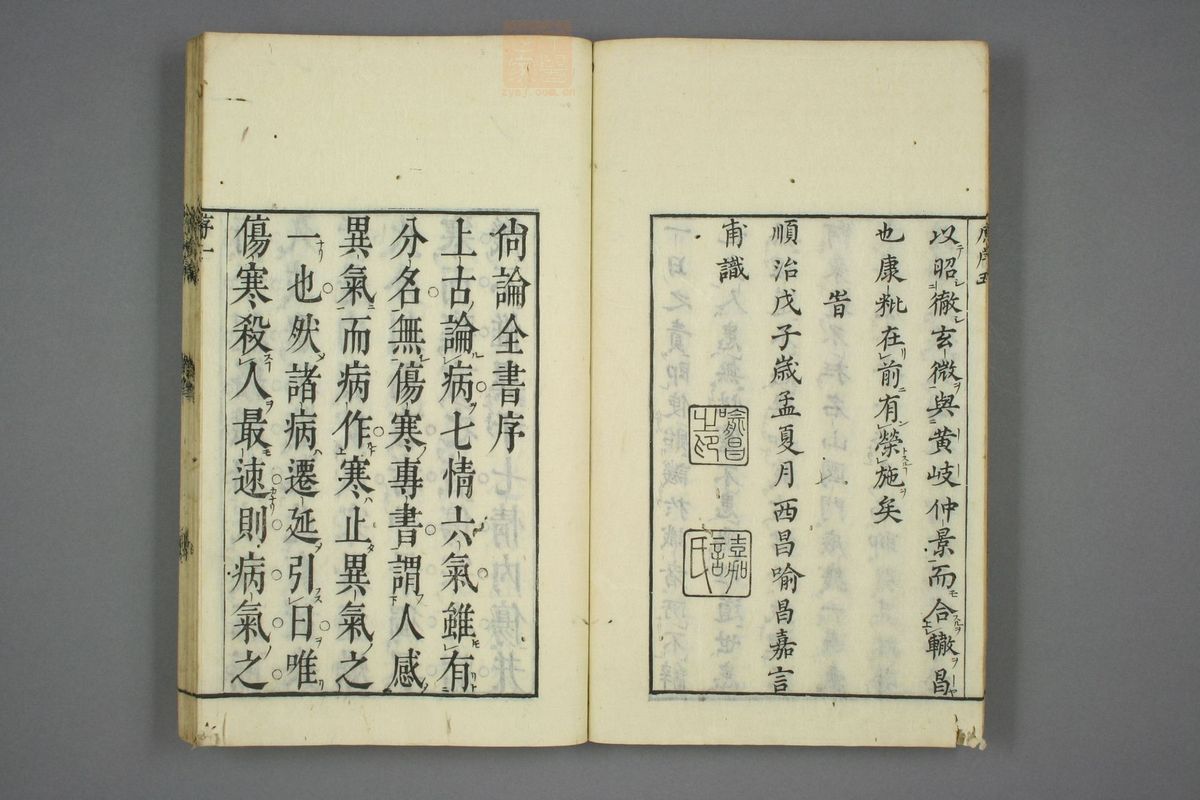 以昭徹玄微與黃岐仲景而合轍昌
也康粃在前有榮施矣
旹
順治戊子歲孟夏月西昌喻昌嘉言
甫識
喻昌之印
嘉言氏
尙論全書序
上古論病七情六氣雖有
分名無傷寒專書謂人感
異氣而病作寒止異氣之
一也然諸病遷延引日唯
傷寒殺人最速則病氣之
序一
zysj.com.cn